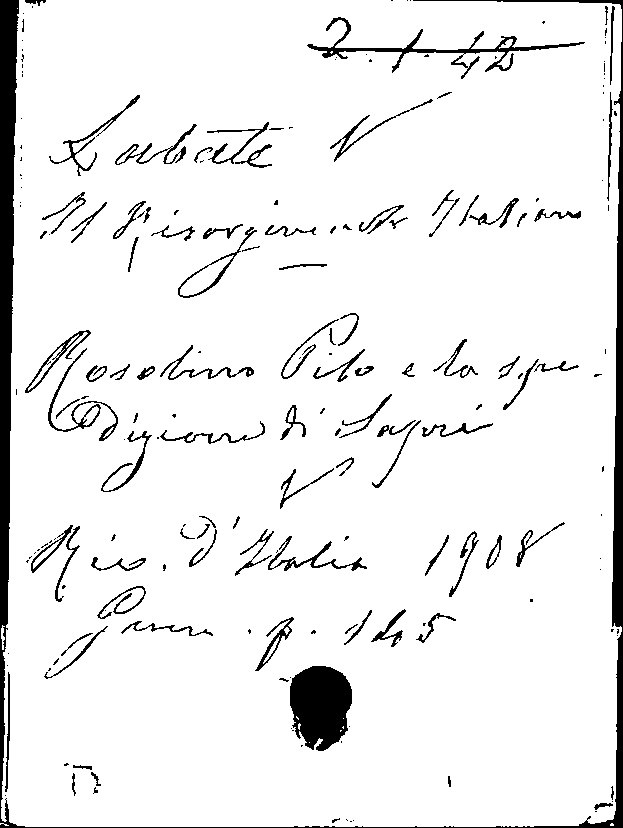 2.1.42
Labate V
Il Risorgimento Italiano
Rosolino Pilo e la spe-
dizione di Sapri
V
Riv. d'Italia 1908
p.